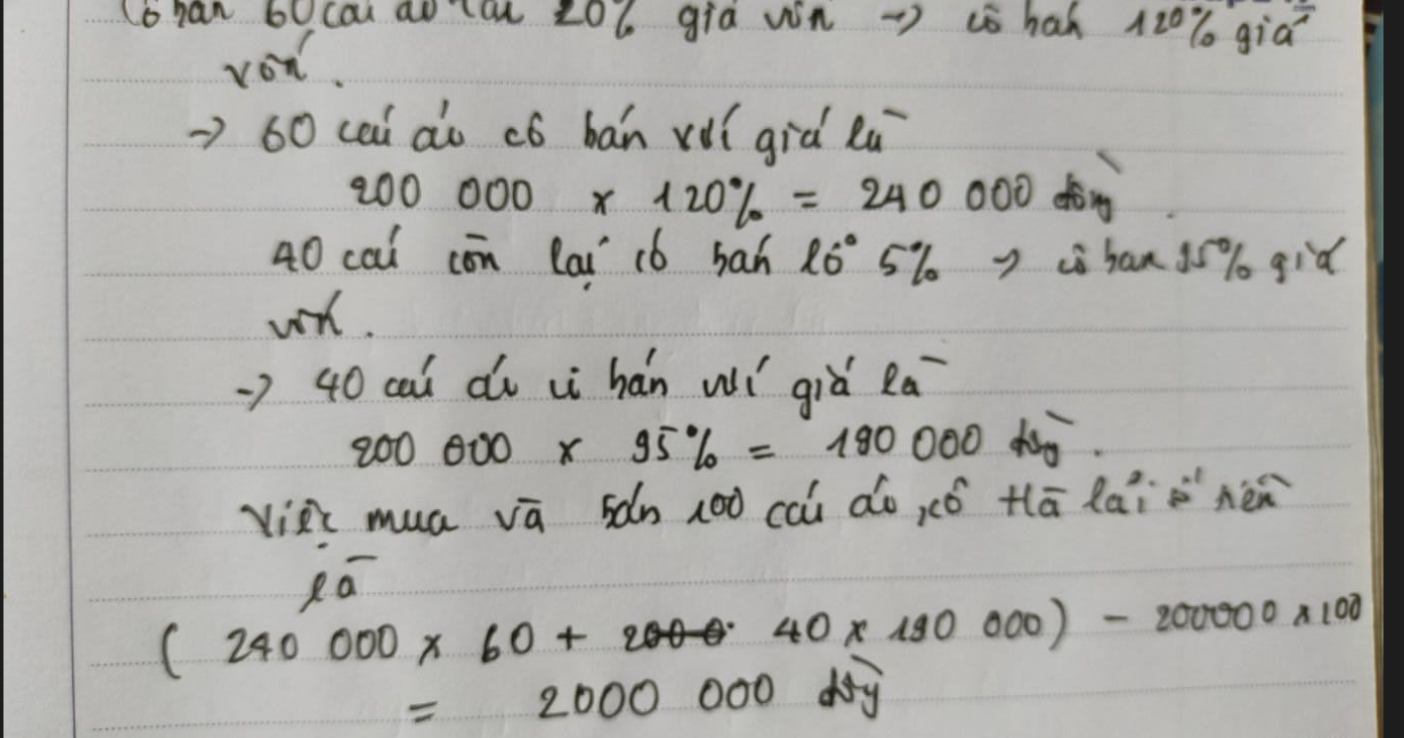 Cô bán 60 cái áo lãi 20% giá vốn → cô bán 120% giá
vốn.
→ 60 cái áo cô bán với giá là
200 000 x 120% = 240 000 đồng
40 cái còn lại cô bán lỗ 5% → cô bán 95% giá
vốn.
→ 40 cái áo cô bán với giá là
200 000 x 95% = 190 000 đồng.
Việc mua và bán 100 cái áo, cô Hà lãi số tiền
là
( 240 000 x 60 + 40 x 190 000) - 200000 x 100
= 2000 000 đồng